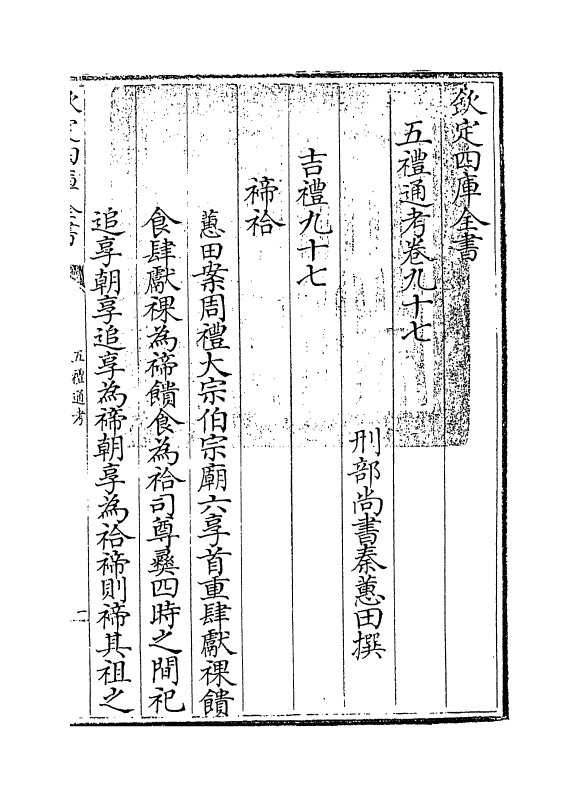 欽定四庫全書
五禮通考卷九十七
刑部尚書秦蕙田撰
吉禮九十七
禘祫
蕙田案周禮大宗伯宗廟六享首重肆獻祼饋
食肆獻祼為禘饋食為祫司尊彝四時之間祀
追享朝享追享為禘朝享為祫禘則禘其祖之
欽定四庫全書
五禮通考